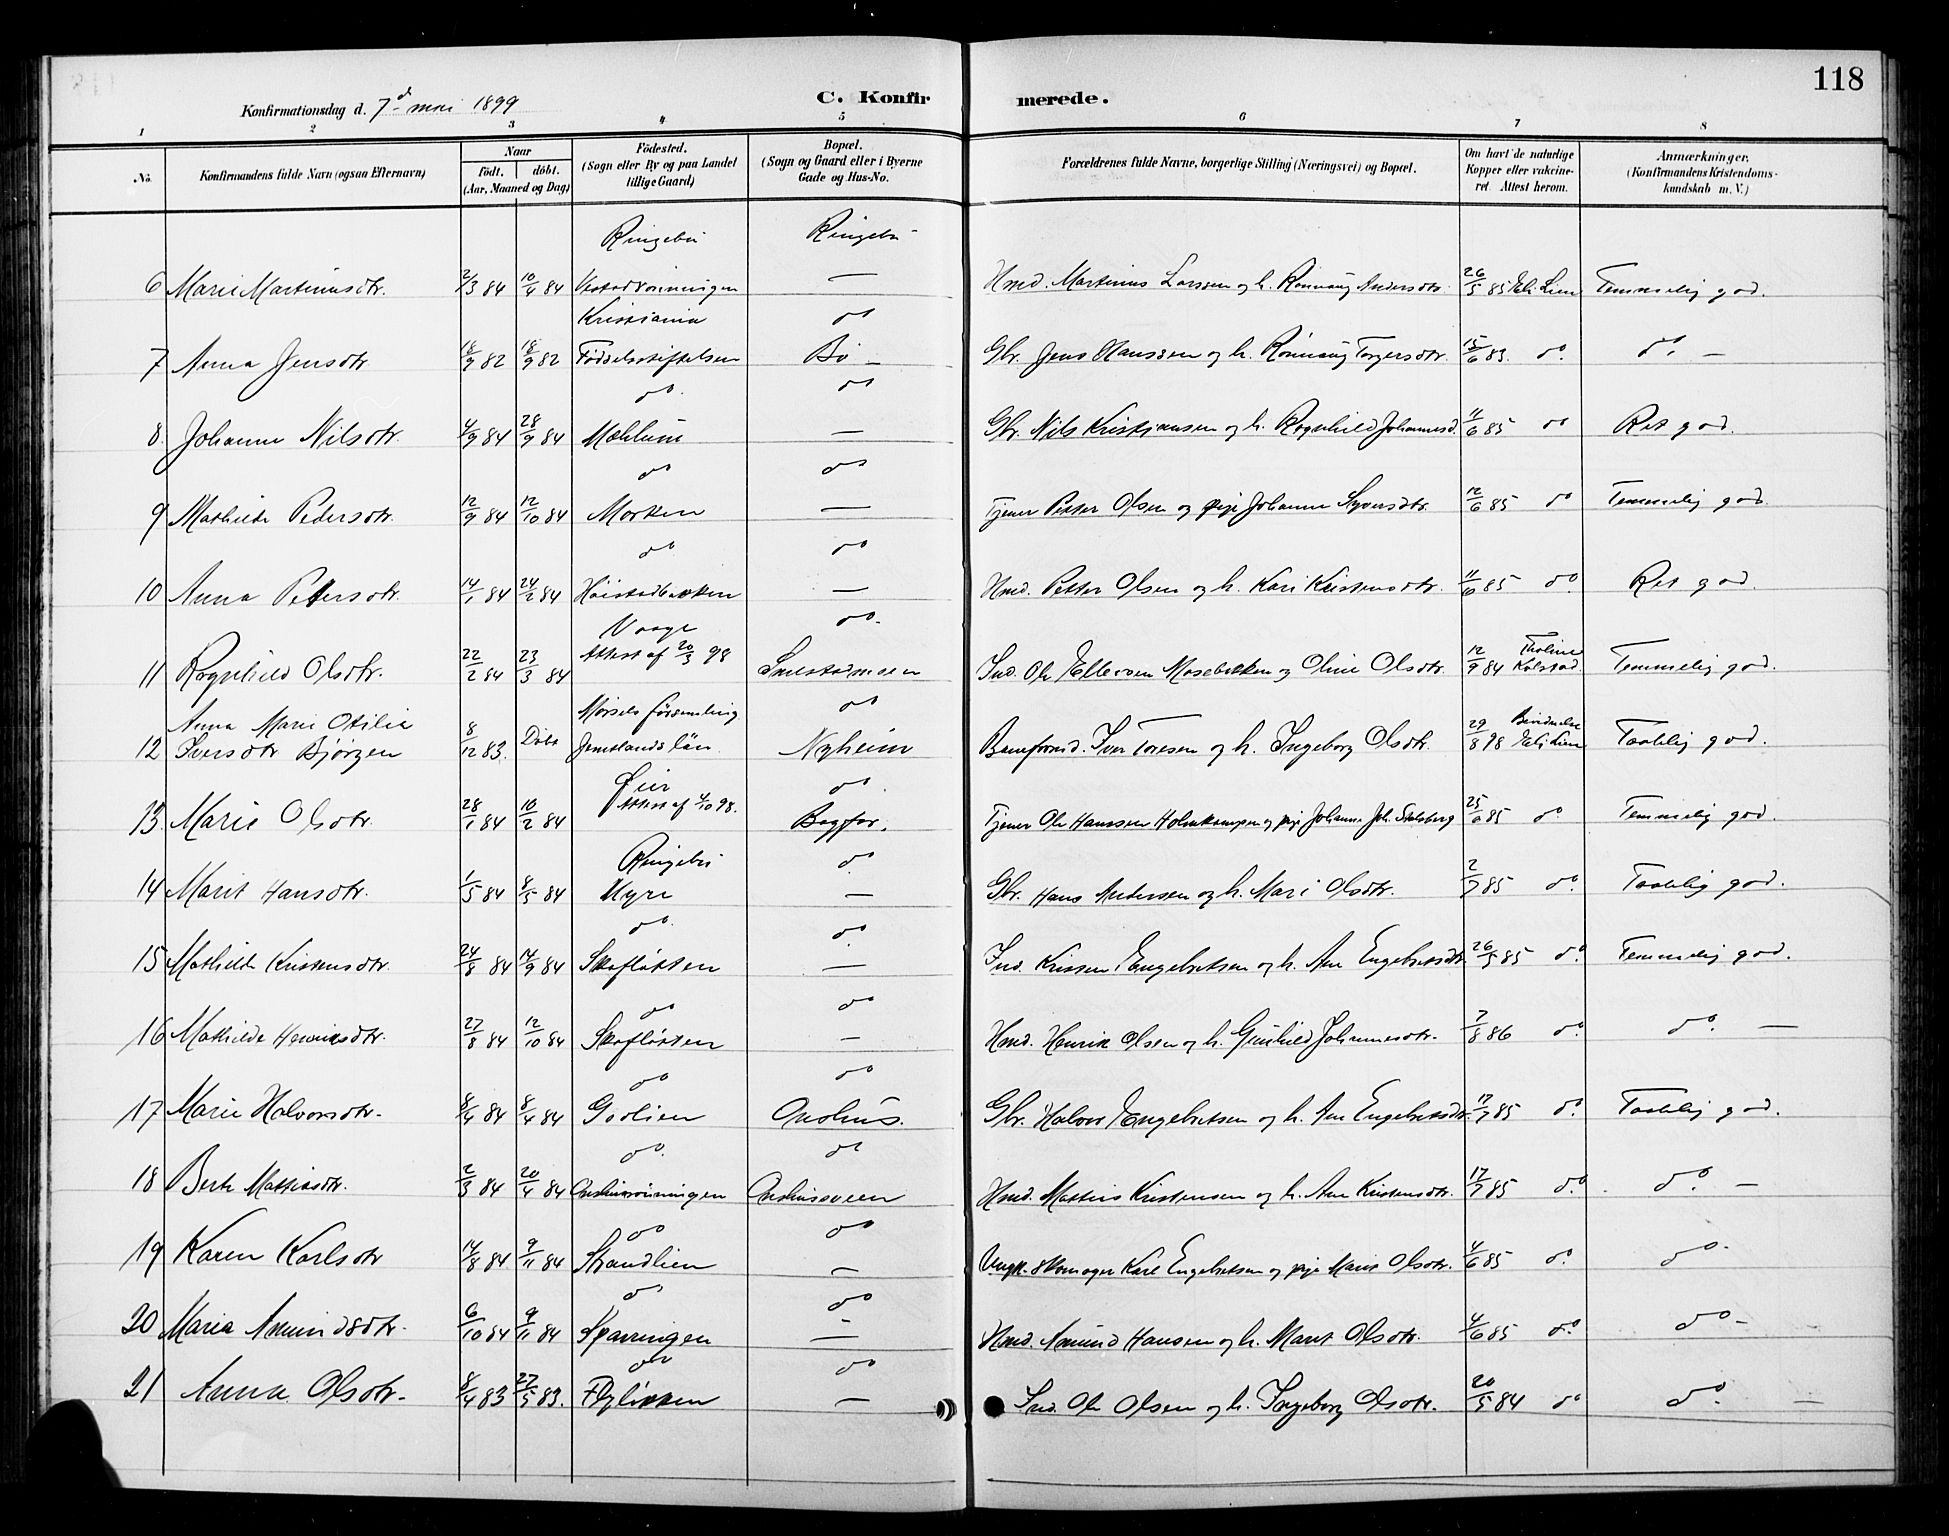 118
Konfirmationsdag d. 7d mai 1899
C. Konfirmerede.
1 2 3 4 5 6 7 8
No. Konfirmandens fulde Navn (ogsaa Efternavn) Naar födt. döbt. (Aar, Maaned og Dag) Födested. (Sogn eller By og paa Landet tillige Gaard) Bopæl. (Sogn og Gaard eller i Byerne Gade og Hus-No. Forældrenes fulde Navne, borgerlige Stilling (Næringsvei) og Bopæl. Om havt de naturlige Kopper eller vakcineret. Attest herom. Anmærkninger. (Konfirmandens Kristendomskundskab m. V.)
Ringebu Ringebu
6 Marie Martinusdtr. 2/3 84 10/4 84 — Hmd. Martinus Larssen og h. Rønnaug Andersdtr. 26/5 85 Lien Temmelig god.
Kristiania do
7 Anna Jensdtr. 18/9 82 18/9 82 Fødselsstiftelsen Bø — Gbr. Jens Hanssen og h. Rønnaug Torgersdtr. 15/6 83. do. do. —
do. do
8. Johanne Nilsdtr. 4/9 84 28/9 84 Mæhlum — Gbr. Nils Kristiansen og h. Ragnhild Johannesd. 11/6 85 do Ret god.
do do
9 Mathilde Pedersdtr. 12/9 84 12/10 84 Morken — Tjener Petter Olsen og pige Johanne Syversdtr. 12/6 85 do Temmelig god.
do do
10 Anna Pettersdtr. 14/1 84 24/2 84 Høistadbakken — Hmd. Petter Olsen og h. Kari Kristensdtr. 11/6 85 do. Ret god.
Vaage do.
11 Ragnhild Olsdtr. 22/2 84 23/3 84 Attest af 20/3 98 Ind. Ole Ellevsen Mosebakken og Oline Olsdtr. 12/9 84 Kolstad. Temmelig god.
Anna Marie Otilia Mørsels församling do
12 Iversdtr Bjørgen 8/12 83. Döbt Jemtlands län. Nyheim Baneform. Iver Toresen og h. Ingeborg Olsdtr. 29/8 98 Lien Taalelig god.
Øier do.
13. Marie Olsdtr. 28/1 84 10/2 84 Attest af 4/10 98. Tjener Ole Hanssen Holmkampen og pige Johanne Joh. 25/6 85 do Temmelig god.
Ringebu do.
14 Marit Hansdtr. 1/5 84 8/5 84 Myre — Gbr. Hans Andersen og h. Mari Olsdtr. 2/7 85 do. Taalelig god.
do. do.
15 Mathilde Kristensdtr. 24/8 84 14/9 84 Skofløtten — Ind. Kristen Engebretsen og h. Ane Engebretsdtr. 26/5 85 do. Temmelig god.
do do
16 Mathilde Henriksdtr. 27/8 84 12/10 84 Skofløtten — Hmd. Henrik Olsen og h. Gunhild Johannesdtr. 7/8 86 do. do. —
do do
17 Marie Halvorsdtr. 8/4 84 8/4 84 Godlien Gbr. Halvor Engebretsen og h. Ane Engebretsdtr. 17/7 85 do. Taalelig god.
do. do
18 Berte Mattiasdtr. 2/3 84 20/4 84 Hmd. Mattias Kristensen og h. Ane Kristensdtr. 17/7 85 do. do. —
do do
19 Karen Karlsdtr 14/8 84 9/11 84 Strandlien — Ungk. skomager Karl Engebretsen og pige Marit Olsdtr. 4/6 85 do. do.
do do
20 Maria Amundsdtr. 6/10 84 9/11 84 Sparringen — Hmd. Amund Hansen og h. Marit Olsdtr. 4/6 85 do. do. —
do do
21 Anna Olsdtr. 8/4 83 27/5 83. — Ind. Ole Olsen og h. Ingeborg Olsdtr. 20/5 84 do do. —